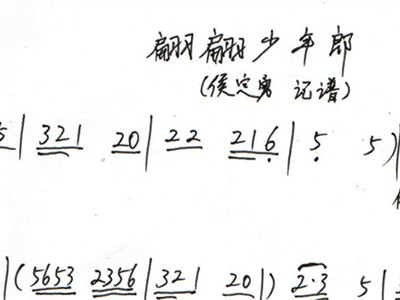 翩翩少年郎
(侯定勇 记谱)
5 | 321 20 | 22 216 | 5 5) |
| (5653 2356 | 321 20 |) 2·3 5 |